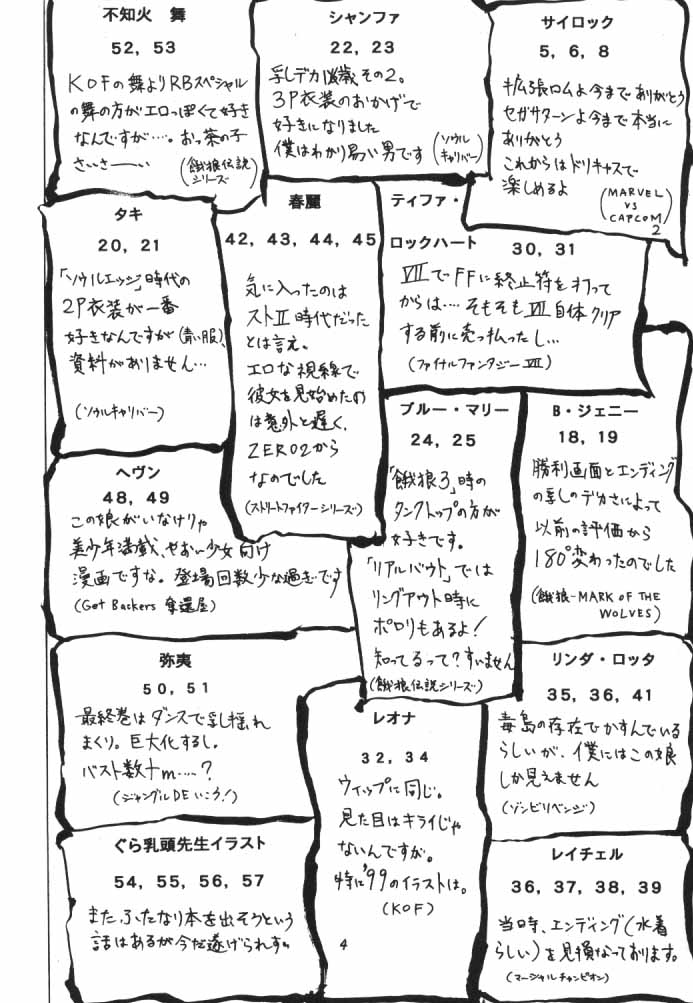 不知火　舞
52, 53
KOFの舞よりRBスペシャル
の舞の方がエロっぽくて好き
なんですが‥‥。おっ茶の子
さいさーーい
(餓狼伝説
シリーズ)
シャンファ
22, 23
乳デカ
その2。
3P衣装のおかげで
好きになりました
僕はわかり易い男です
(ソウル
キャリバー)
サイロック
5, 6, 8
拡張ロムよ今までありがとう
セガサターンよ今まで本当に
ありがとう
これからはドリキャスで
楽しめるよ
(MARVEL
VS
CAPCOM
2
タキ
20, 21
「ソウルエッジ」時代の
2P衣装が一番
好きなんですが(青い服)、
資料がありません…
(ソウルキャリバー)
春麗
42, 43, 44, 45
気に入ったのは
ストⅡ時代だった
とは言え。
エロな視線で
彼女を見始めたの
は意外と遅く、
ZERO2から
なのでした
(ストリートファイターシリーズ)
ティファ・
ロックハート
30, 31
ⅦでFFに終止符を打って
からは‥‥そもそもⅦ自体クリア
する前に売っ払ったし…
(ファイナルファンタジーⅦ)
ブルー・マリー
24, 25
「餓狼3」時の
タンクトップの方が
好きです。
「リアルバウト」では
リングアウト時に
ポロリもあるよ!
知ってるって?すいません
(餓狼伝説シリーズ)
B・ジェニー
18, 19
勝利画面とエンディング
の乳のデカさによって
以前の評価から
180°変わったのでした
(餓狼-MARK OF THE
WOLVES)
ヘヴン
48, 49
この娘がいなけりゃ
美少年満載、やおい少女向け
漫画ですな。登場回数少な過ぎです
(Get Backers 奪還屋)
弥夷
50, 51
最終巻はダンスで乳揺れ
まくり。巨大化するし。
バスト数十m‥‥?
(ジャングルDEいこう!)
レオナ
32, 34
ウィップに同じ。
見た目はキライじゃ
ないんですが。
特に'99のイラストは。
(KOF)
リンダ・ロッタ
35, 36, 41
毒島の存在でかすんでいる
らしいが、僕にはこの娘
しか見えません
(ゾンビリベンジ)
ぐら乳頭先生イラスト
54, 55, 56, 57
また、ふたなり本を出そうという
話はあるが今だ遂げられず。
レイチェル
36, 37, 38, 39
当時、エンディング(水着
らしい)を見損なっております。
(マーシャルチャンピオン)
4